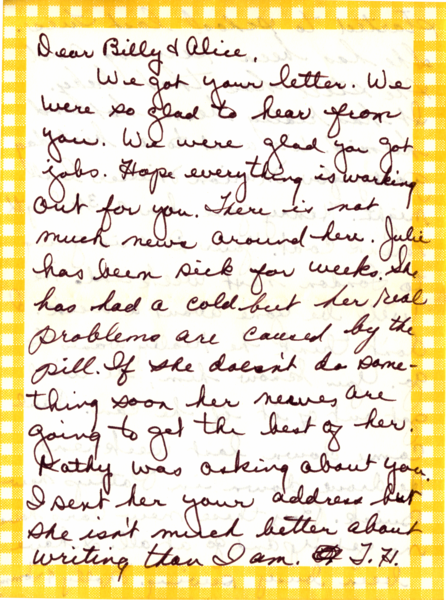 Dear Billy & Alice,
We got your letter. We
were so glad to hear from
you. We were glad you got
jobs. Hope everything is working
out for you. There is not
much news around here. Julie
has been sick for weeks. She
has had a cold but her real
problems are caused by the
pill. If she doesn't do some-
thing soon her nerves are
going to get the best of her.
Kathy was asking about you.
I sent her your address but
she isn't much better about
writing than I am. T.H.